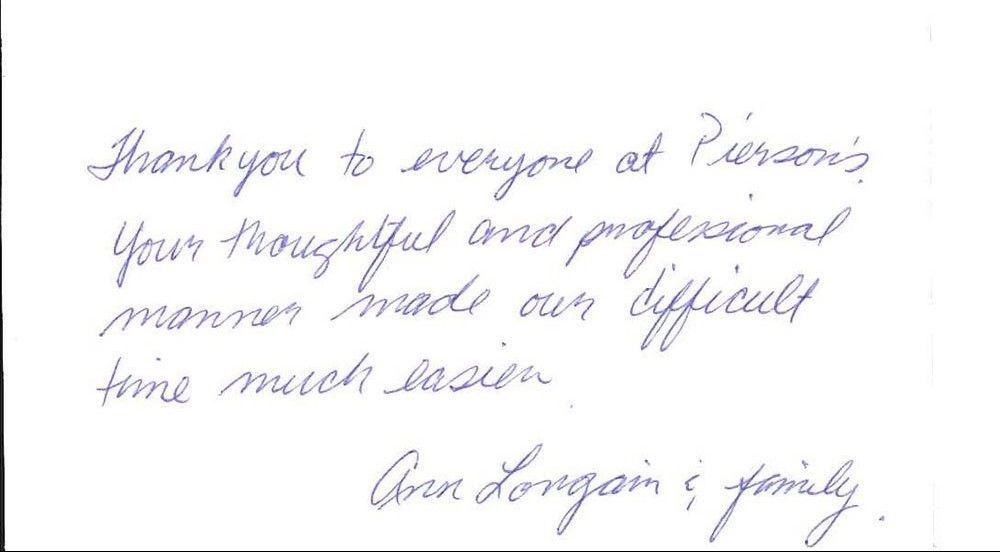 Thank you to everyone at Pierson's.
Your thoughtful and professional
manner made our difficult
time much easier.
Ann Longain & family.